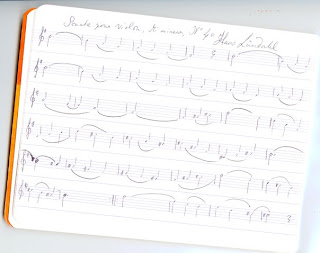 Sonate pour violon, A mineur, N° 40 Hans Lindahl
3
3